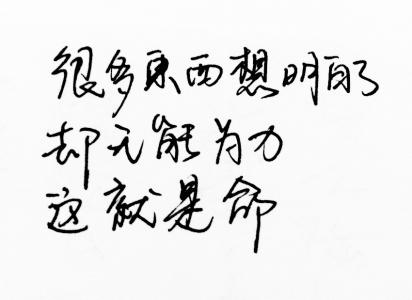 很多東西想明白了
却无能为力
这就是命